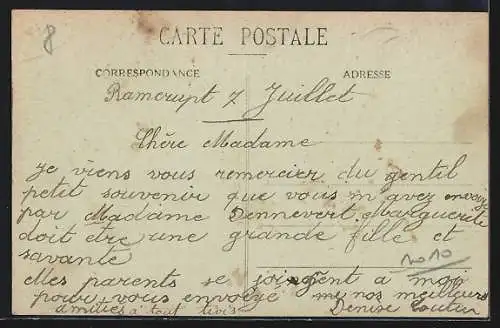 8
CARTE POSTALE
CORRESPONDANCE
ADRESSE
Ramerupt 7 Juillet
Chère Madame
Je viens vous remercier du gentil
petit souvenir que vous m'avez envoyé
par Madame Dennevert. Marguerite
doit être une grande fille et
savante
Mes parents se joingent à moi
pour vous envoyé nos meilleurs
amitiés à tout
Denise